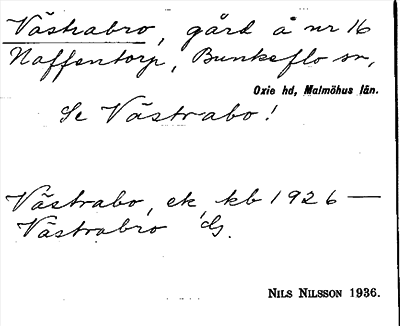 Västrabro, gård å nr 16
Naffentorp, Bunkeflo sn,
Oxie hd, Malmöhus län.
Se Västrabo!
Västrabo, ek, kb 1926 —
Västrabro ds.
NILS NILSSON 1936.